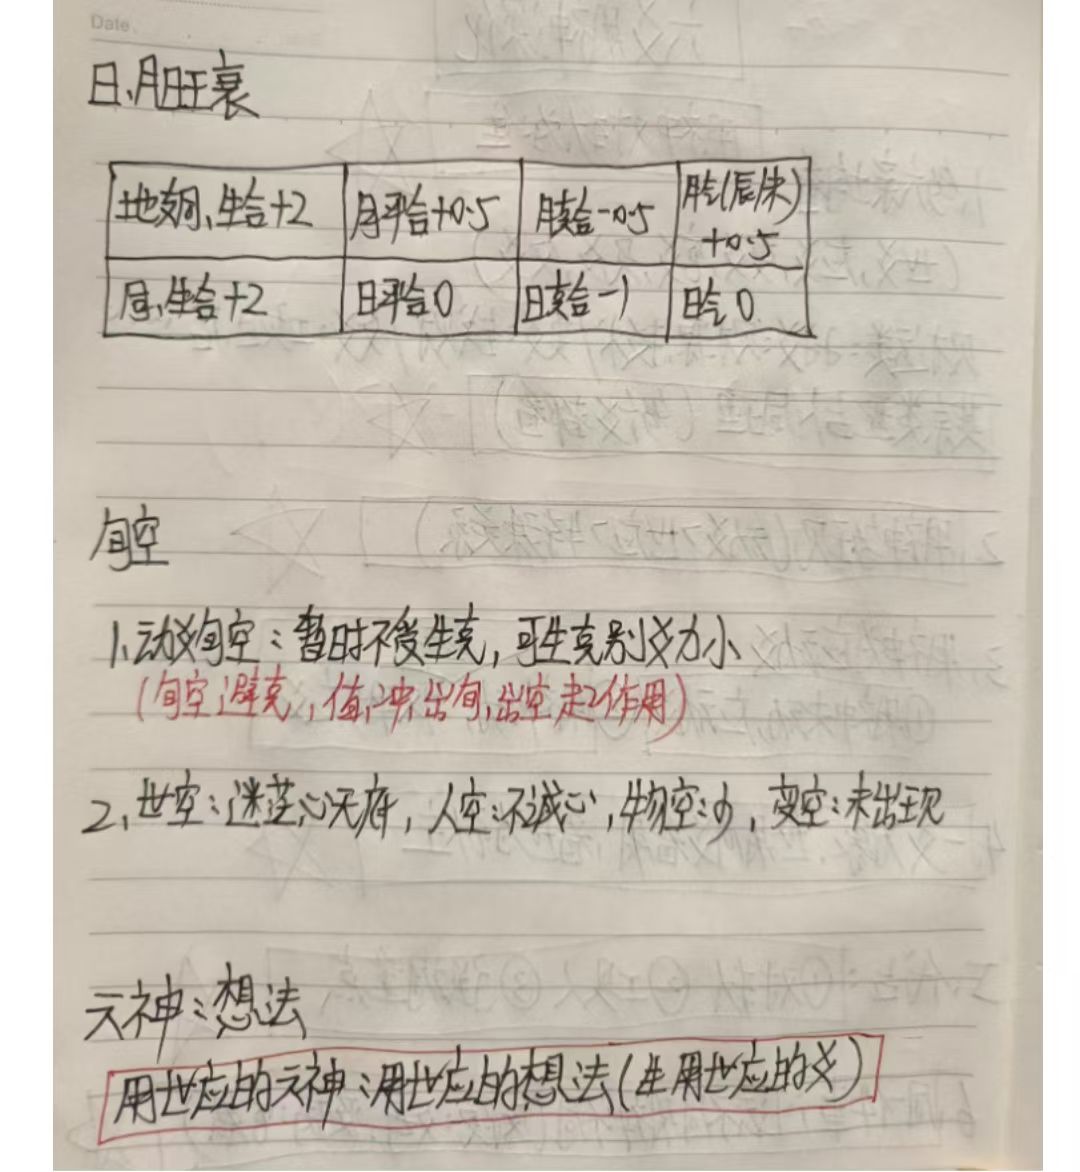 Date
日、月旺衰
地支同、生合+2 月平合+0.5 月克合-0.5 月气(辰/未)+0.5
同、生合+2 日平合0 日克合-1 日气0
旬空
1.动爻旬空：暂时不受生克，可生克别爻力小
(旬空避克，值、冲、出旬，出空起作用)
2、世空：迷茫心无底，人空：不诚心，物空：少，变空：未出现
元神：想法
用世应的元神：用世应的想法(生用世应的爻)